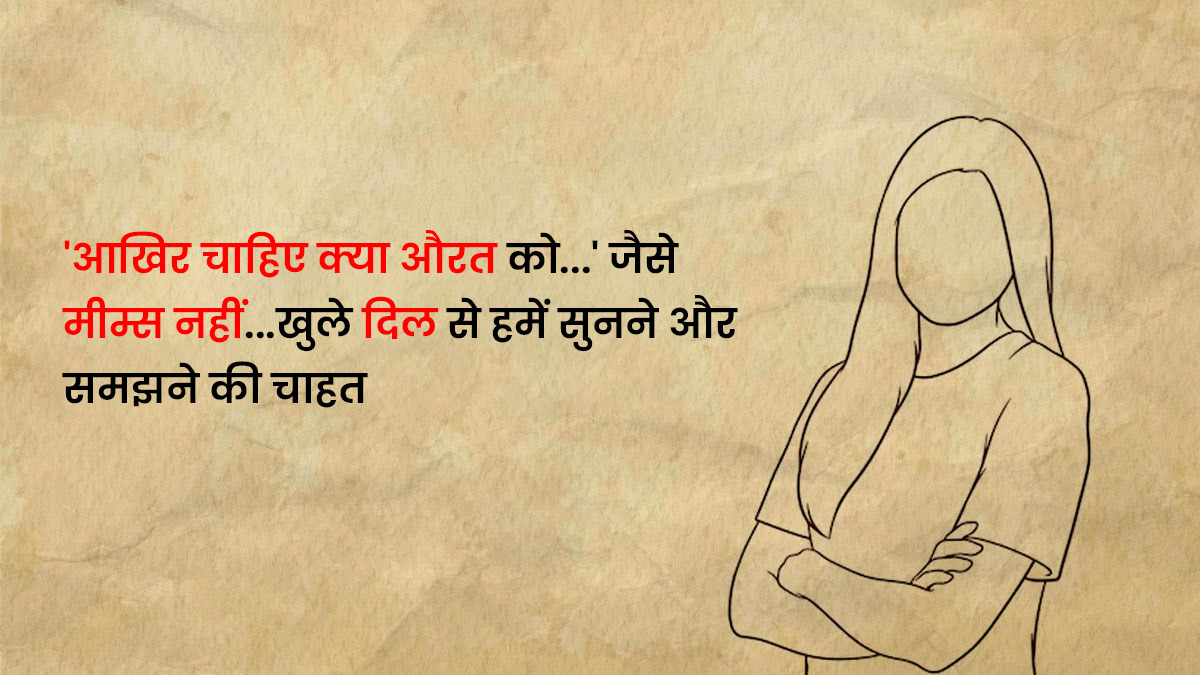 'आखिर चाहिए क्या औरत को...' जैसे
मीम्स नहीं...खुले दिल से हमें सुनने और
समझने की चाहत